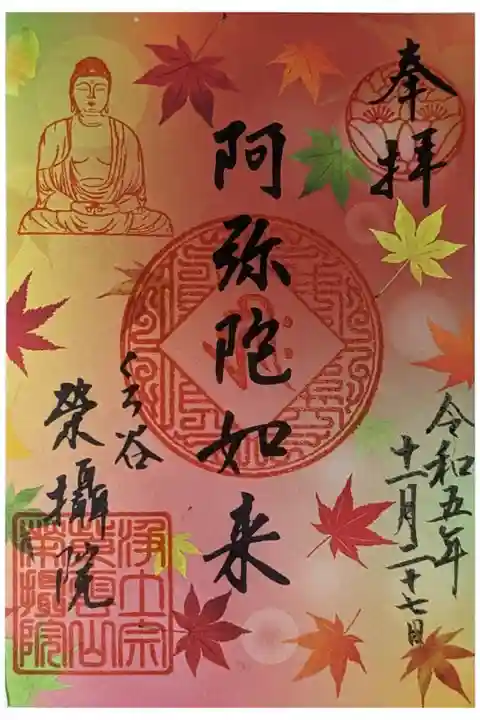 奉拝
阿弥陀如来
くろ谷
榮攝院
令和五年
十一月二十七日
浄土宗